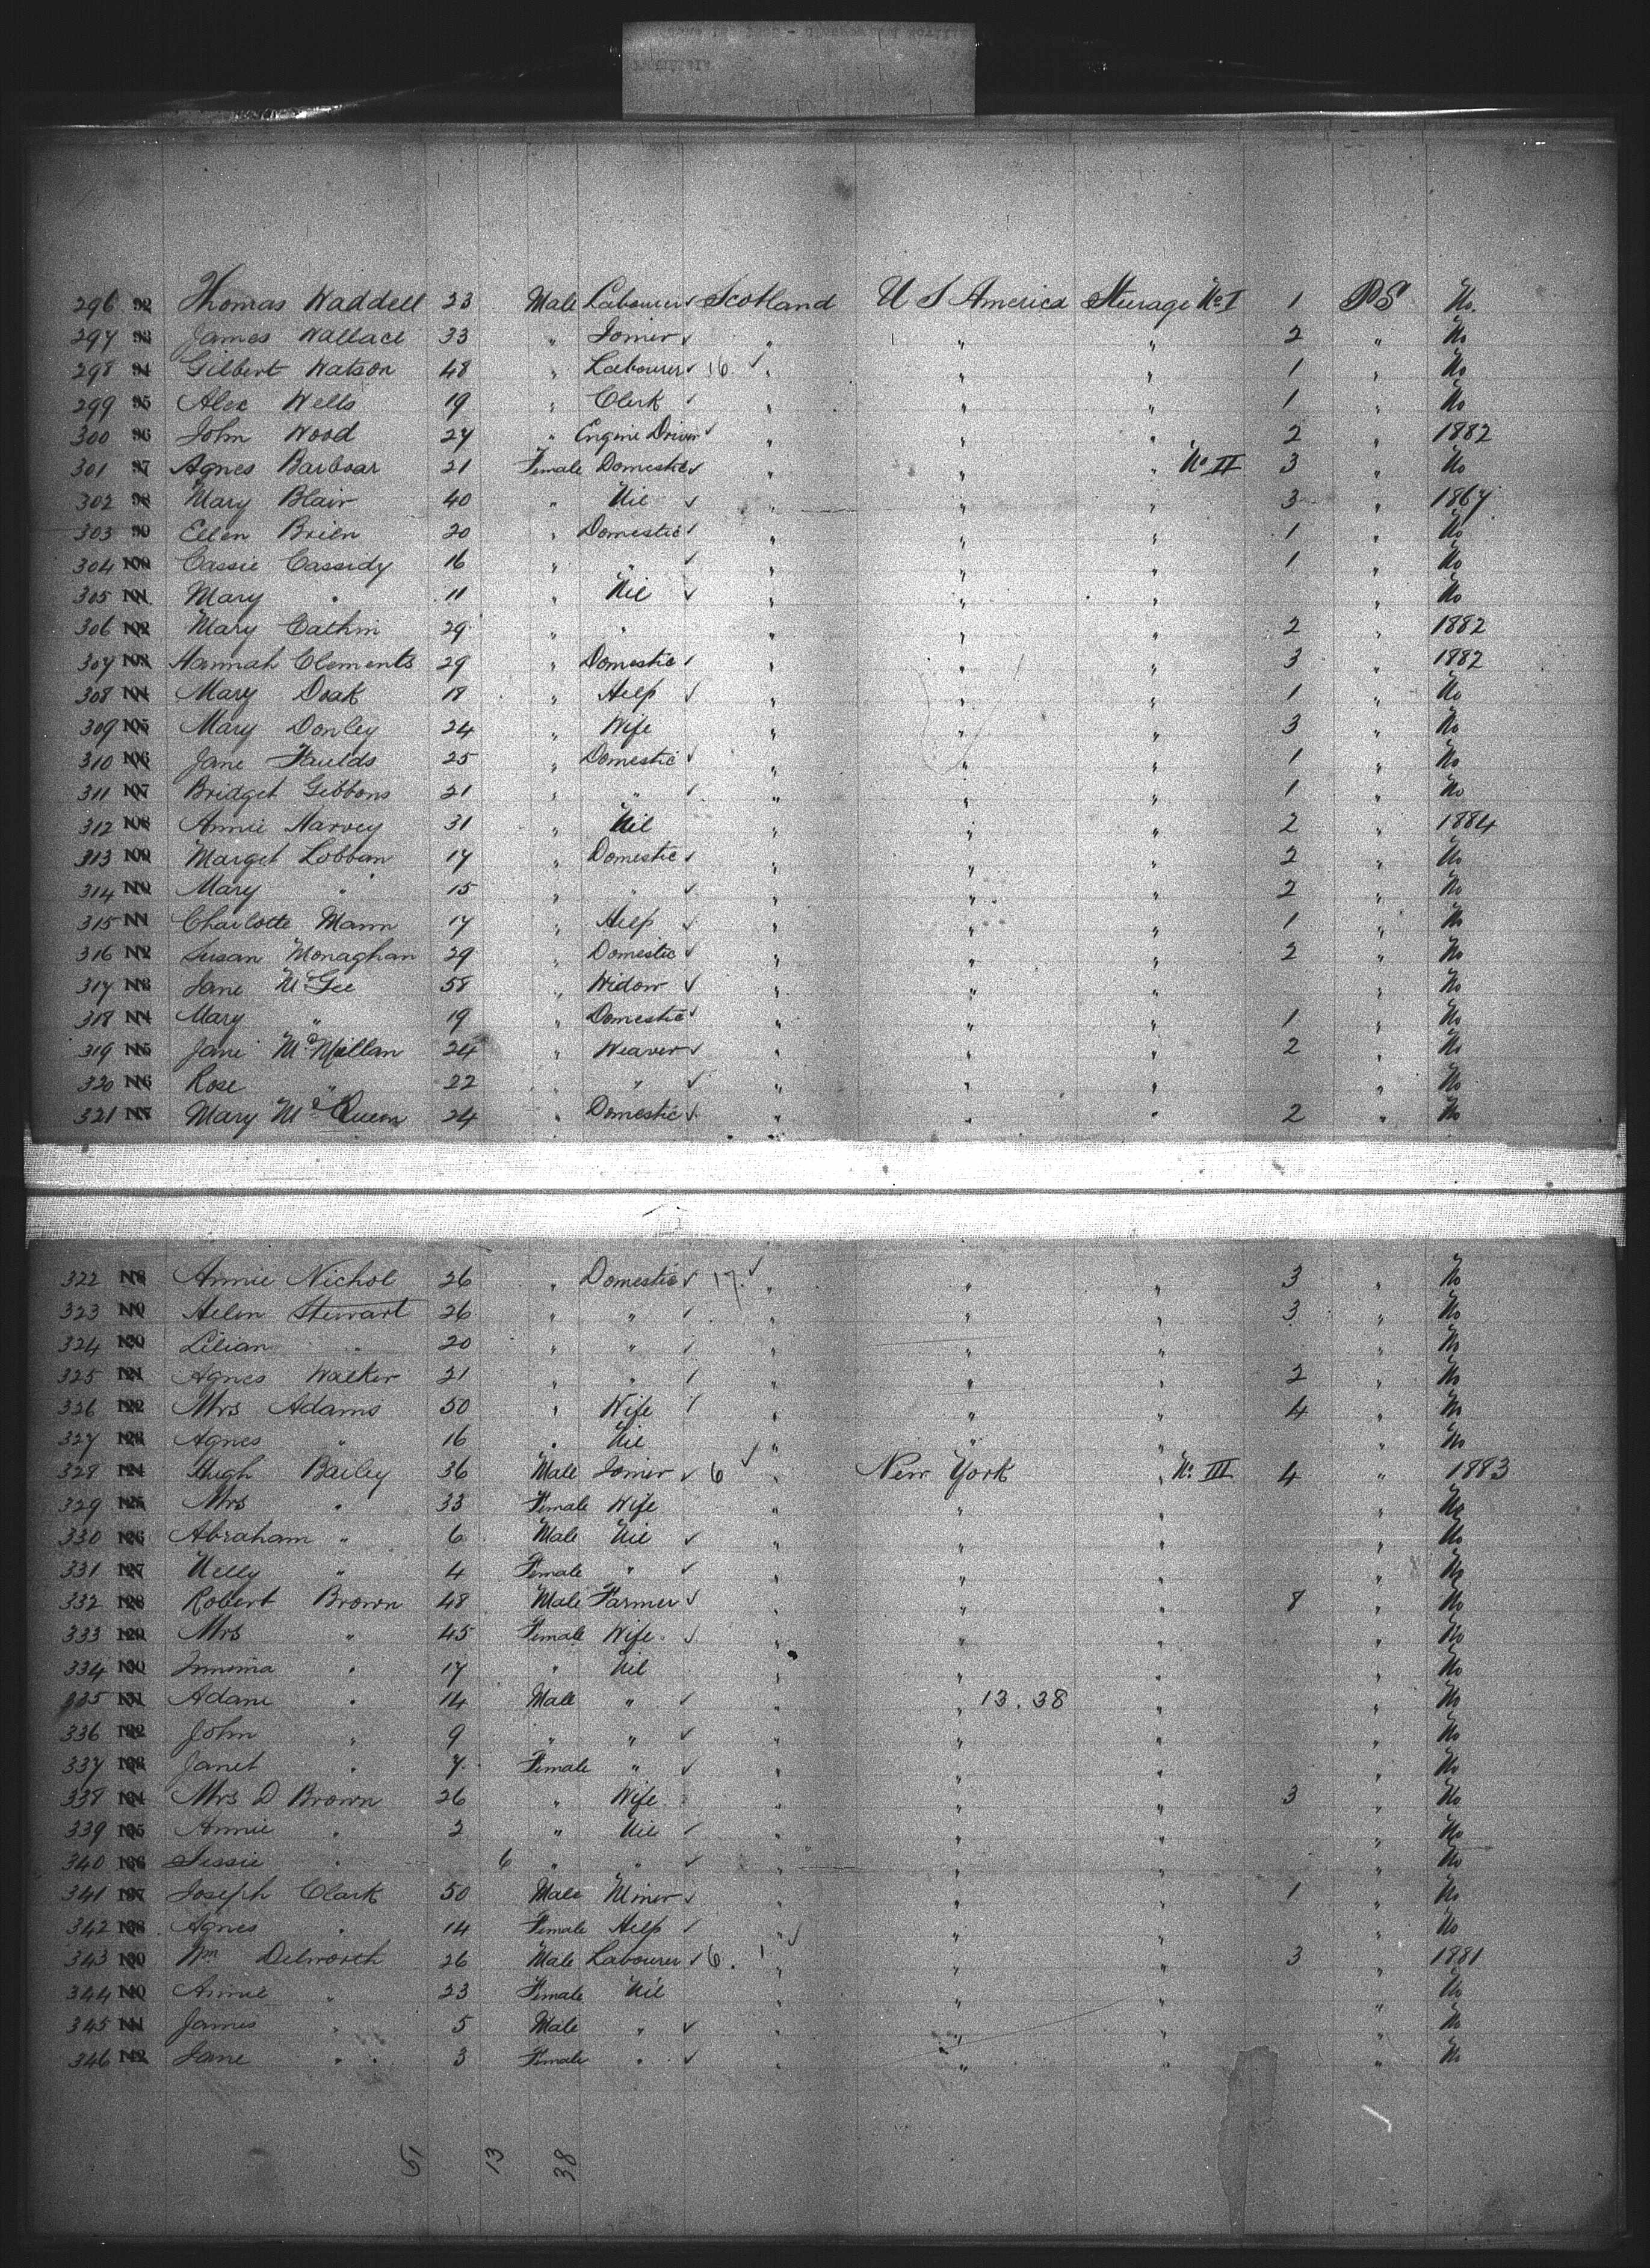 296 92 Thomas Waddell 23 Male Labourer Scotland U S America Steerage No I 1 PS No.
297 93 James Wallace 33 " Joiner " " " 2 " No
298 94 Gilbert Watson 48 " Labourer 16. " " " 1 " No
299 95 Alex Wells 19 " Clerk " " " 1 " No
300 96 John Wood 27 " Engine Driver " " " 2 " 1882
301 97 Agnes Barboar 21 Female Domestic " " " No II 3 " No
302 98 Mary Blair 40 " Nil " " " 3 " 1867
303 99 Ellen Brien 20 " Domestic " " " 1 " No
304 100 Cassie Cassidy 16 " " " " " 1 " No
305 101 Mary " 11 " Nil " " " " No
306 102 Mary Cathin 29 " " " " " 2 " 1882
307 103 Hannah Clements 29 " Domestic " " " 3 " 1882
308 104 Mary Doak 18 " Help " " " 1 " No
309 105 Mary Donley 24 " Wife " " " 3 " No
310 106 Jane Faulds 25 " Domestic " " " 1 " No
311 107 Bridget Gibbons 21 " " " " " 1 " No
312 108 Annie Harvey 31 " Nil " " " 2 " 1884
313 109 Marget Lobban 17 " Domestic " " " 2 " No
314 110 Mary " 15 " " " " " 2 " No
315 111 Charlotte Mann 17 " Help " " " 1 " No
316 112 Susan Monaghan 29 " Domestic " " " 2 " No
317 113 Jane McGee 58 " Widow " " " " No
318 114 Mary " 19 " Domestic " " " 1 " No
319 115 Jane McMillan 24 " Weaver " " " 2 " No
320 116 Rose " 22 " " " " " " No
321 117 Mary McQueen 24 " Domestic " " " 2 " No
322 118 Annie Nichol 26 " Domestic 17. " " " 3 " No
323 119 Helen Stewart 26 " " " " " 3 " No
324 120 Lilian " 20 " " " " " " No
325 121 Agnes Walker 21 " " " " " 2 " No
326 122 Mrs Adams 50 " Wife " " " 4 " No
327 123 Agnes " 16 " Nil " " " " No
328 124 Hugh Bailey 36 Male Joiner 6 " New York " No III 4 " 1883
329 125 Mrs " 33 Female Wife " " " " No
330 126 Abraham " 6 Male Nil " " " " No
331 127 Nelly " 4 Female " " " " " No
332 128 Robert Brown 48 Male Farmer " " " 8 " No
333 129 Mrs " 45 Female Wife " " " " No
334 130 Jemima " 17 " Nil " " " " No
335 131 Adam " 14 Male " " " 13.38 " " No
336 132 John " 9 " " " " " " No
337 133 Janet " 7 Female " " " " " No
338 134 Mrs D Brown 26 " Wife " " " 3 " No
339 135 Annie " 2 " Nil " " " " No
340 136 Jessie " 6 " " " " " " No
341 137 Joseph Clark 50 Male Miner " " " 1 " No
342 138 Agnes " 14 Female Help " " " " No
343 139 Wm Delworth 26 Male Labourer 6. " " " 3 " 1881
344 140 Annie " 23 Female Nil " " " " No
345 141 James " 5 Male " " " " " No
346 142 Jane " 3 Female " " " " " No
51 13 38